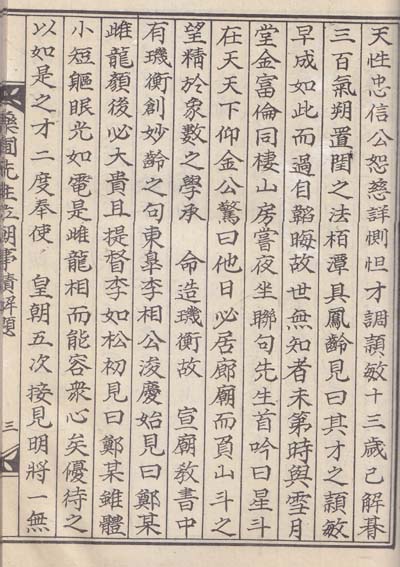 天性忠信公恕慈詳惻怛才調穎敏十三歲已解朞
三百氣朔置閏之法栢潭具鳳齡見曰其才之穎敏
早成如此而過自韜晦故世無知者未第時與雪月
堂金富倫同棲山房嘗夜坐聯句先生首吟曰星斗
在天天下仰金公驚曰他日必居廊廟而負山斗之
望精於象數之學承 命造璣衡故 宣廟敎書中
有璣衡創妙齡之句東皐李相公浚慶始見曰鄭某
雌龍顏後必大貴且提督李如松初見曰鄭某雖體
小短軀眼光如電是雌龍相而能容衆心矣優待之
以如是之才二度奉使 皇朝五次接見明將一無
藥圃先生立朝事蹟解題 三